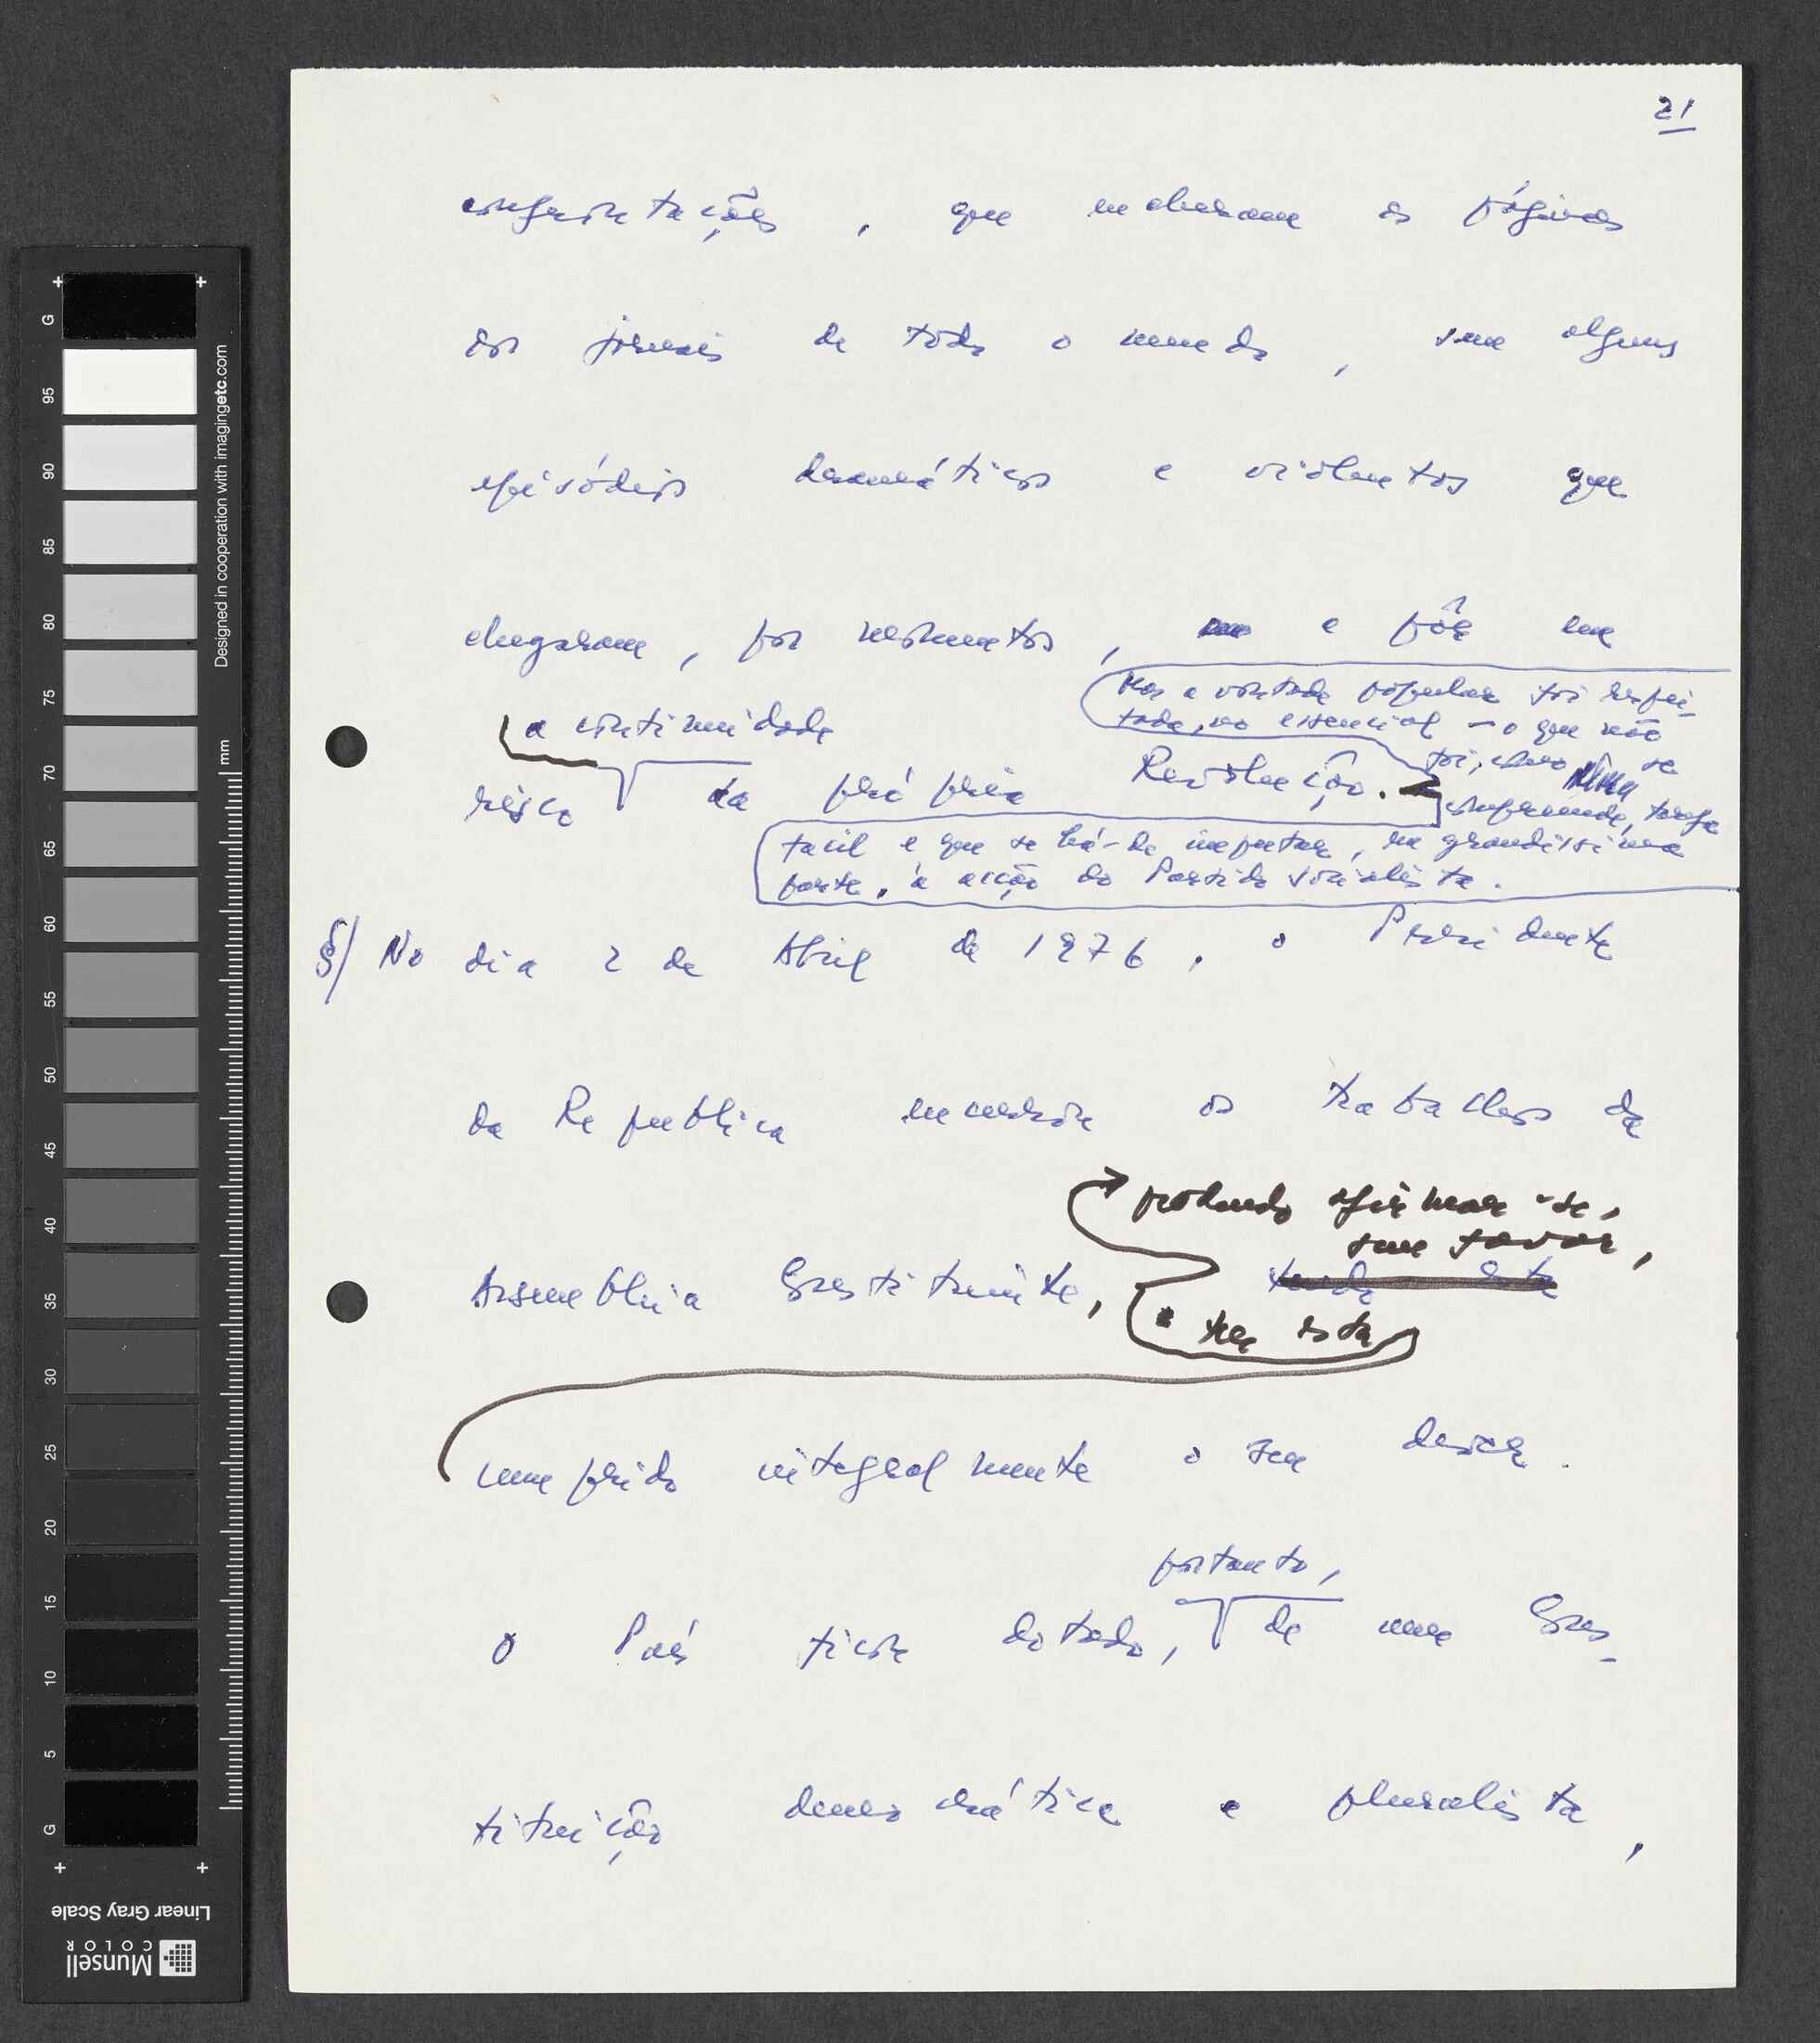 21
confrontações, que encheram as páginas
dos jornais de todo o mundo, com alguns
episódios dramáticos e violentos que
chegaram, por momentos, a pôr em
Mas a vontade popular foi respei-
tada, no essencial - o que não
a continuidade
foi, como se
risco da própria Revolução.
compreende, tarefa
fácil e que se há-de imputar, na grandíssima
parte, à acção do Partido Socialista.
§/ No dia 2 de Abril de 1976, o Presidente
da Republica encerrou os trabalhos da
podendo afirmar-se,
sem favor,
Assembleia Constituinte, tendo esta
ter esta
cumprido integralmente o seu dever.
portanto,
O País ficou dotado, de uma Cons-
tituição democrática e pluralista,
Designed in cooperation with imagingetc.com
mm
G 95 90 85 80 75 70 65 60 55 50 45 40 35 30 25 20 15 10 5 G
Linear Gray Scale
Munsell
COLOR